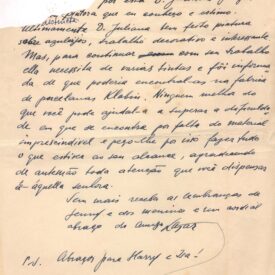 por esta D. Juliana
pintora que eu conheço e estimo.
Ultimamente D. Juliana tem feito pintura
sobre azulejos, trabalho decorativo e interessante.
Mas, para continuar com seu trabalho
ella necessita de varias tintas e foi informa
da de que poderia encontral-as na fabrica
de porcelanas Klabin. Ninguem melhor do
que você poderá ajudal-a a superar a difficuldade
em que se encontra por falta do material
imprescindivel e peço-lhe por isso fazer tudo
o que esteja ao seu alcance, agradecendo
de antemão toda attenção que você dispensar
àquella senhora.
Sem mais receba as lembranças de
Jenny e dos meninos e um cordial
abraço do amigo Lasar
P.S. Abraços para Harry e Eva!